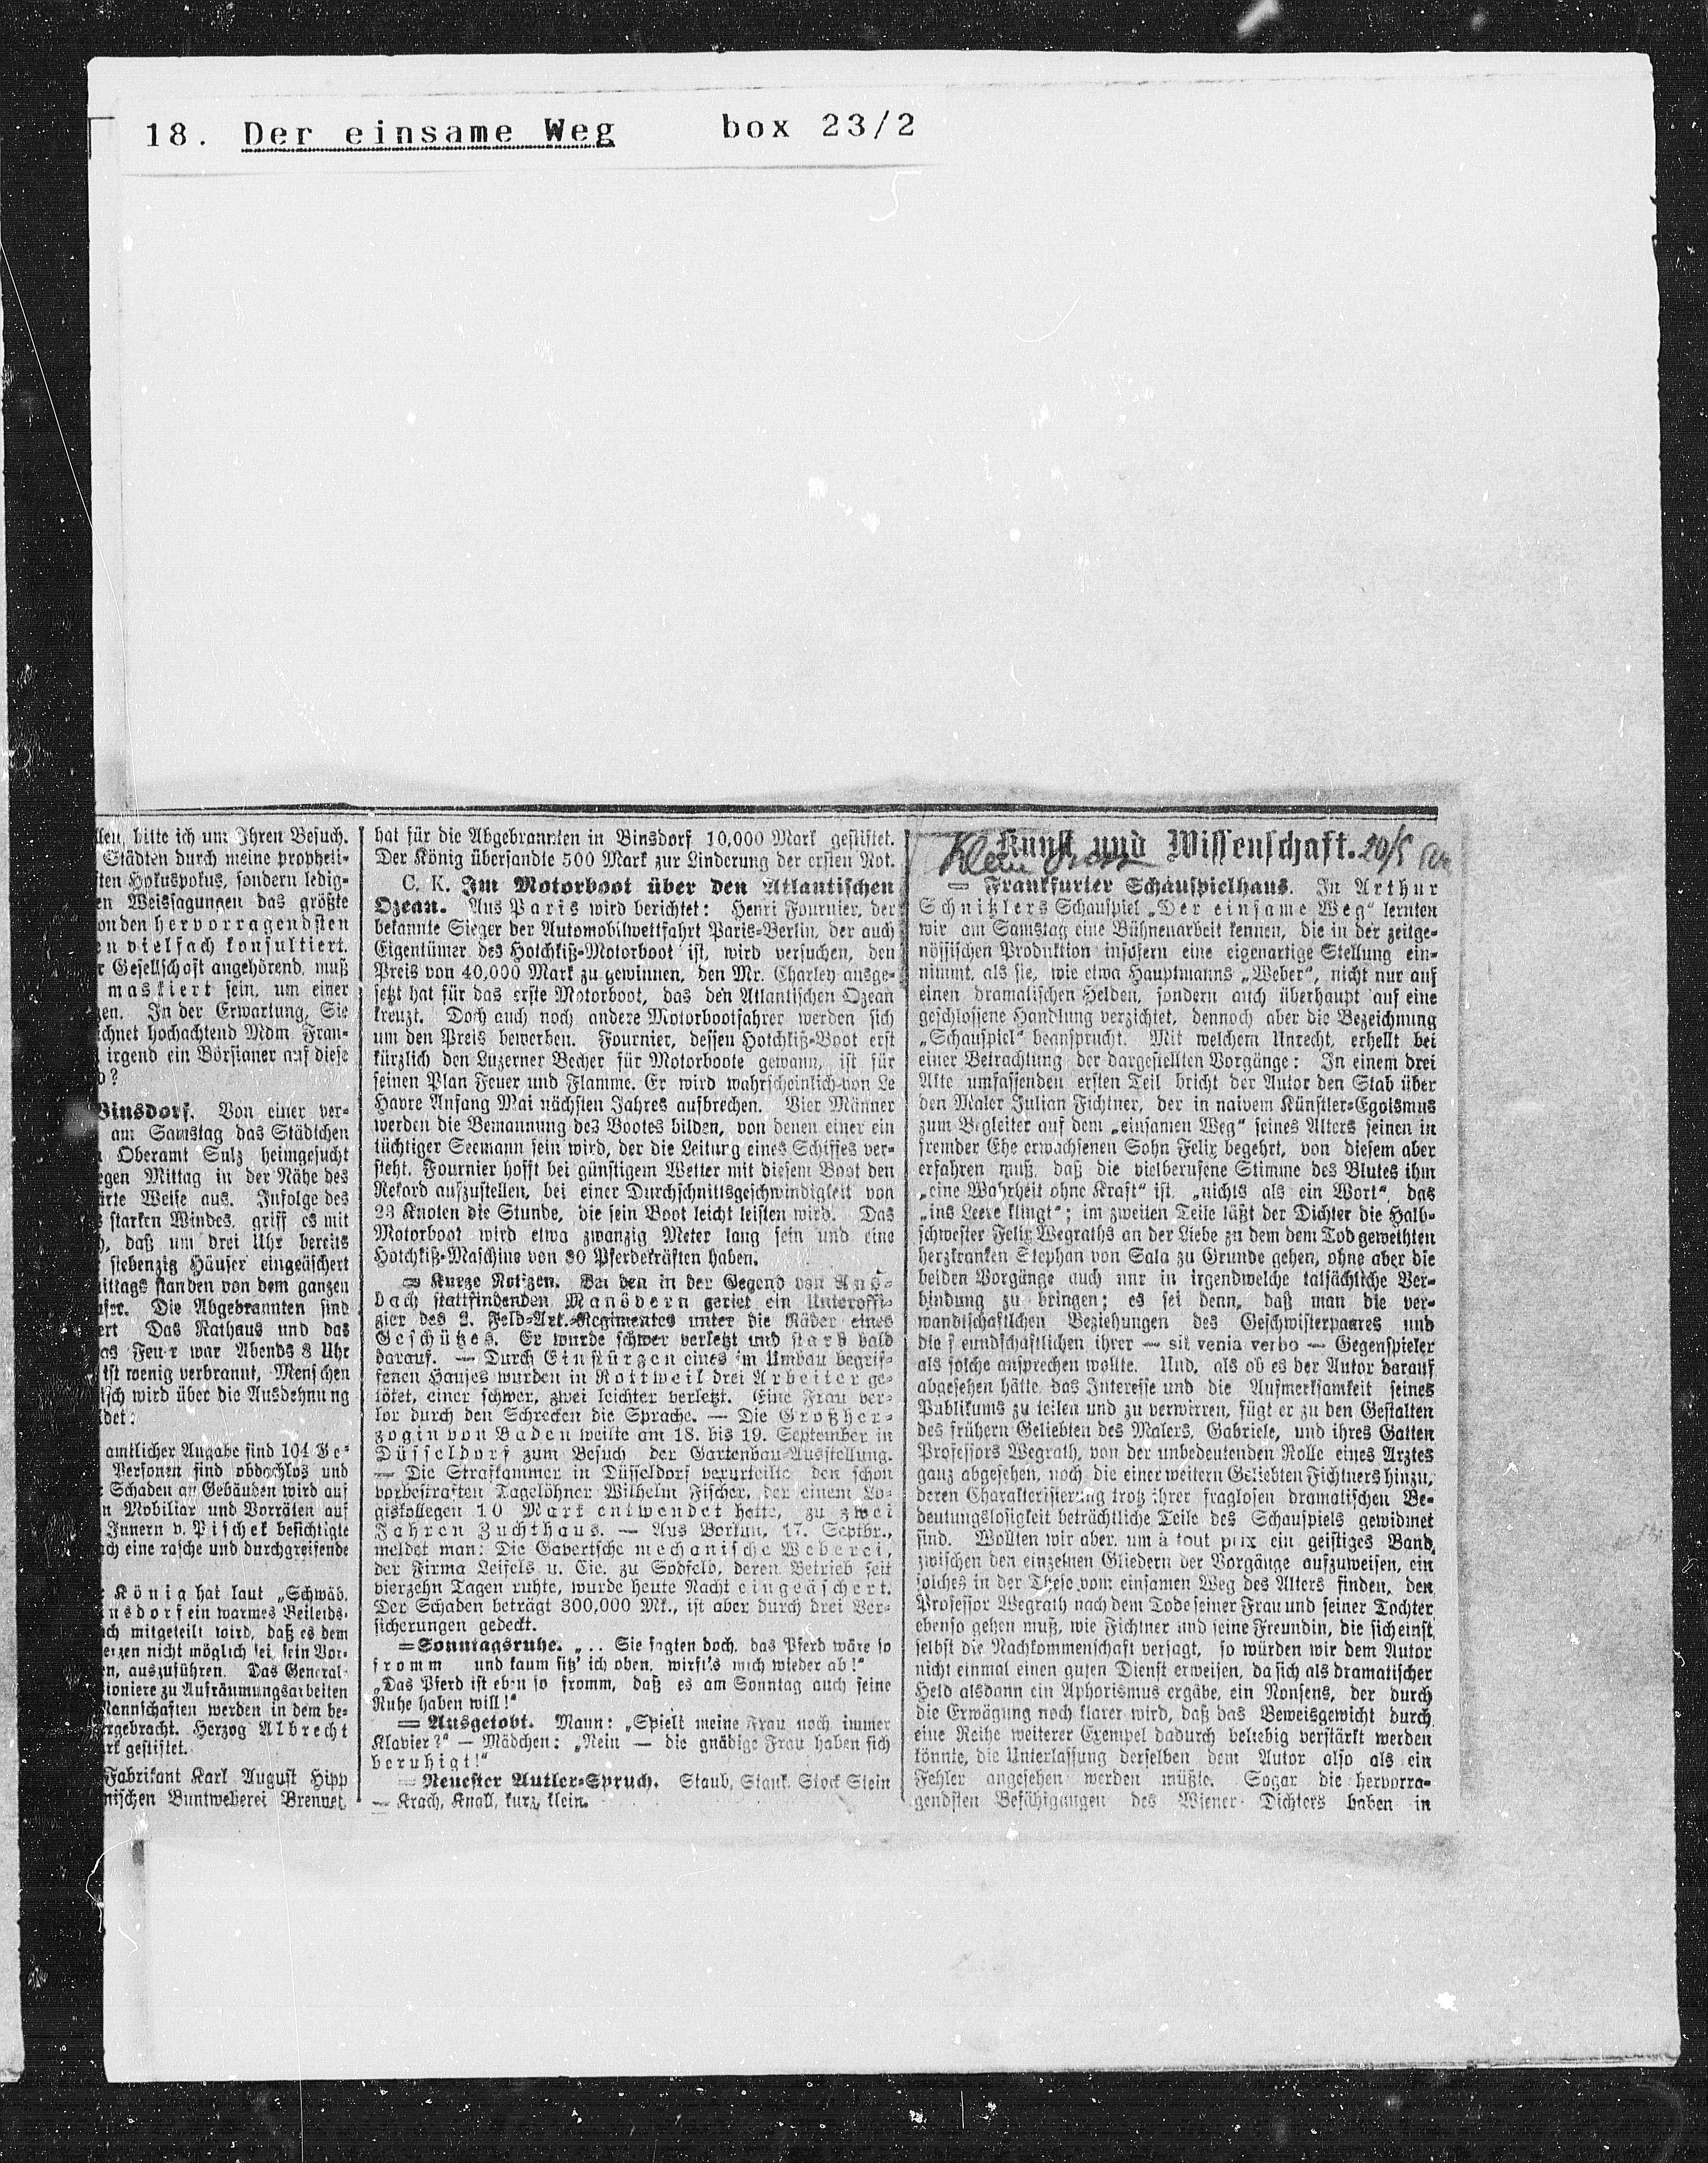 18. Der einsame Weg box 23/2
llen, bitte ich um Ihren Besuch.
Städten durch meine propheti-
ten Hokuspokus, sondern ledig-
en Weissagungen das größte
on den hervorragendsten
en vielfach konsultiert.
r Gesellschaft angehörend, muß
maskiert sein, um einer
gen. In der Erwartung, Sie
chnet hochachtend Mdm. Fran-
irgend ein Börsianer auf diese
d?
Binsdorf. Von einer ver-
am Samstag das Städtchen
Oberamt Sulz heimgesucht
egen Mittag in der Nähe des
ärte Weise aus. Infolge des
s starken Windes, griff es mit
h, daß um drei Uhr bereits
siebenzig Häuser eingeäschert
ittags standen von dem ganzen
user. Die Abgebrannten sind
ert Das Rathaus und das
as Feu r war Abends 8 Uhr
ist wenig verbrannt, Menschen
sch wird über die Ausdehnung
det:
amtlicher Angabe sind 104 Ge-
Personen sind obdachlos und
Schaden an Gebäuden wird auf
n Mobiliar und Vorräten auf
Innern v. Pischek besichtigte
ch eine rasche und durchgreifende
König hat laut „Schwäb.
nsdorf ein warmes Beileids-
ch mitgeteilt wird, daß es dem
erzen nicht möglich sei, sein Vor-
en, auszuführen. Das General-
ioniere zu Aufräumungsarbeiten
Mannschaften werden in dem be-
rgebracht. Herzog Albrecht
rk gestiftet.
Fabrikant Karl August Hipp
nischen Buntweberei Brennet
hat für die Abgebrannten in Binsdorf 10,000 Mark gestiftet.
Der König übersandte 500 Mark zur Linderung der ersten Not.
C. K. Im Motorboot über den Atlantischen
Ozean. Aus Paris wird berichtet: Henri Fournier, der
bekannte Sieger der Automobilwettfahrt Paris-Berlin, der auch
Eigentümer des Hotchkiß-Motorboot ist, wird versuchen, den
Preis von 40,000 Mark zu gewinnen, den Mr. Charley ausge-
setzt hat für das erste Motorboot, das den Atlantischen Ozean
kreuzt. Doch auch noch andere Motorbootfahrer werden sich
um den Preis bewerben. Fournier, dessen Hotchkiß-Boot erst
kürzlich den Luzerner Becher für Motorboote gewann, ist für
seinen Plan Feuer und Flamme. Er wird wahrscheinlich von Le
Havre Anfang Mai nächsten Jahres aufbrechen. Vier Männer
werden die Bemannung des Bootes bilden, von denen einer ein
tüchtiger Seemann sein wird, der die Leitung eines Schiffes ver-
steht. Fournier hofft bei günstigem Wetter mit diesem Boot den
Rekord aufzustellen, bei einer Durchschnittsgeschwindigkeit von
23 Knoten die Stunde, die sein Boot leicht leisten wird. Das
Motorboot wird etwa zwanzig Meter lang sein und eine
Hotchkiß-Maschine von 80 Pferdekräften haben.
= Kurze Notizen. Bei den in der Gegend von Ans-
bach stattfindenden Manövern geriet ein Unteroffi-
zier des 2. Feld-Art.-Regimentes unter die Räder eines
Geschützes. Er wurde schwer verletzt und starb bald
darauf. — Durch Einstürzen eines im Umbau begrif-
fenen Hauses wurden in Rottweil drei Arbeiter ge-
tötet, einer schwer, zwei leichter verletzt. Eine Frau ver-
lor durch den Schrecken die Sprache. — Die Großher-
zogin von Baden weilte am 18. bis 19. September in
Düsseldorf zum Besuch der Gartenbau-Ausstellung.
— Die Strafkammer in Düsseldorf verurteilte den schon
vorbestraften Tagelöhner Wilhelm Fischer, der einem Lo-
giskollegen 10 Mark entwendet hatte, zu zwei
Jahren Zuchthaus. — Aus Borkun, 17. Septbr.,
meldet man: Die Gavertsche mechanische Weberei,
der Firma Leisels u. Cie. zu Södfeld, deren Betrieb seit
vierzehn Tagen ruhte, wurde heute Nacht eingeäschert.
Der Schaden beträgt 300,000 Mk., ist aber durch drei Ver-
sicherungen gedeckt.
= Sonntagsruhe. „. . Sie sagten doch, das Pferd wäre so
fromm und kaum sitz' ich oben, wirft's mich wieder ab!“
„Das Pferd ist eben so fromm, daß es am Sonntag auch seine
Ruhe haben will!“
= Ausgetobt. Mann: „Spielt meine Frau noch immer
Klavier?“ — Mädchen: „Nein — die gnädige Frau haben sich
beruhigt!“
= Neuester Autler-Spruch. Staub, Stank, Stock Stein
— Krach, Knall, kurz, klein.
Kunst und Wissenschaft. 20/5
= Frankfurter Schauspielhaus. In Arthur
Schnitzlers Schauspiel „Der einsame Weg“ lernten
wir am Samstag eine Bühnenarbeit kennen, die in der zeitge-
nössischen Produktion insofern eine eigenartige Stellung ein-
nimmt, als sie, wie etwa Hauptmanns „Weber“, nicht nur auf
einen dramatischen Helden, sondern auch überhaupt auf eine
geschlossene Handlung verzichtet, dennoch aber die Bezeichnung
„Schauspiel“ beansprucht. Mit welchem Unrecht, erhellt bei
einer Betrachtung der dargestellten Vorgänge: In einem drei
Akte umfassenden ersten Teil bricht der Autor den Stab über
den Maler Julian Fichtner, der in naivem Künstler-Egoismus
zum Begleiter auf dem „einsamen Weg“ seines Alters seinen in
fremder Ehe erwachsenen Sohn Felix begehrt, von diesem aber
erfahren muß, daß die vielberufene Stimme des Blutes ihm
„eine Wahrheit ohne Kraft“ ist, „nichts als ein Wort“, das
„ins Leere klingt“; im zweiten Teile läßt der Dichter die Halb-
schwester Felix Wegraths an der Liebe zu dem dem Tod geweihten
herzkranken Stephan von Sala zu Grunde gehen, ohne aber die
beiden Vorgänge auch nur in irgendwelche tatsächliche Ver-
bindung zu bringen; es sei denn, daß man die ver-
wandtschaftlichen Beziehungen des Geschwisterpaares und
die f eundschaftlichen ihrer — sit venia verbo — Gegenspieler
als solche ansprechen wollte. Und, als ob es der Autor darauf
abgesehen hätte, das Interesse und die Aufmerksamkeit seines
Publikums zu teilen und zu verwirren, fügt er zu den Gestalten
des frühern Geliebten des Malers, Gabriele, und ihres Gatten
Professors Wegrath, von der unbedeutenden Rolle eines Arztes
ganz abgesehen, noch die einer weitern Geliebten Fichtners hinzu,
deren Charakterisierung trotz ihrer fraglosen dramatischen Be-
deutungslosigkeit beträchtliche Teile des Schauspiels gewidmet
sind. Wollten wir aber, um à tout prix ein geistiges Band,
zwischen den einzelnen Gliedern der Vorgänge aufzuweisen, ein
solches in der These vom einsamen Weg des Alters finden, den
Professor Wegrath nach dem Tode seiner Frau und seiner Tochter
ebenso gehen muß, wie Fichtner und seine Freundin, die sich einst
selbst die Nachkommenschaft versagt, so würden wir dem Autor
nicht einmal einen guten Dienst erweisen, da sich als dramatischer
Held alsdann ein Aphorismus ergäbe, ein Nonsens, der durch
die Erwägung noch klarer wird, daß das Beweisgewicht durch
eine Reihe weiterer Exempel dadurch beliebig verstärkt werden
könnte, die Unterlassung derselben dem Autor also als ein
Fehler angesehen werden müßte. Sogar die hervorra-
gendsten Befähigungen des Wiener Dichters haben in